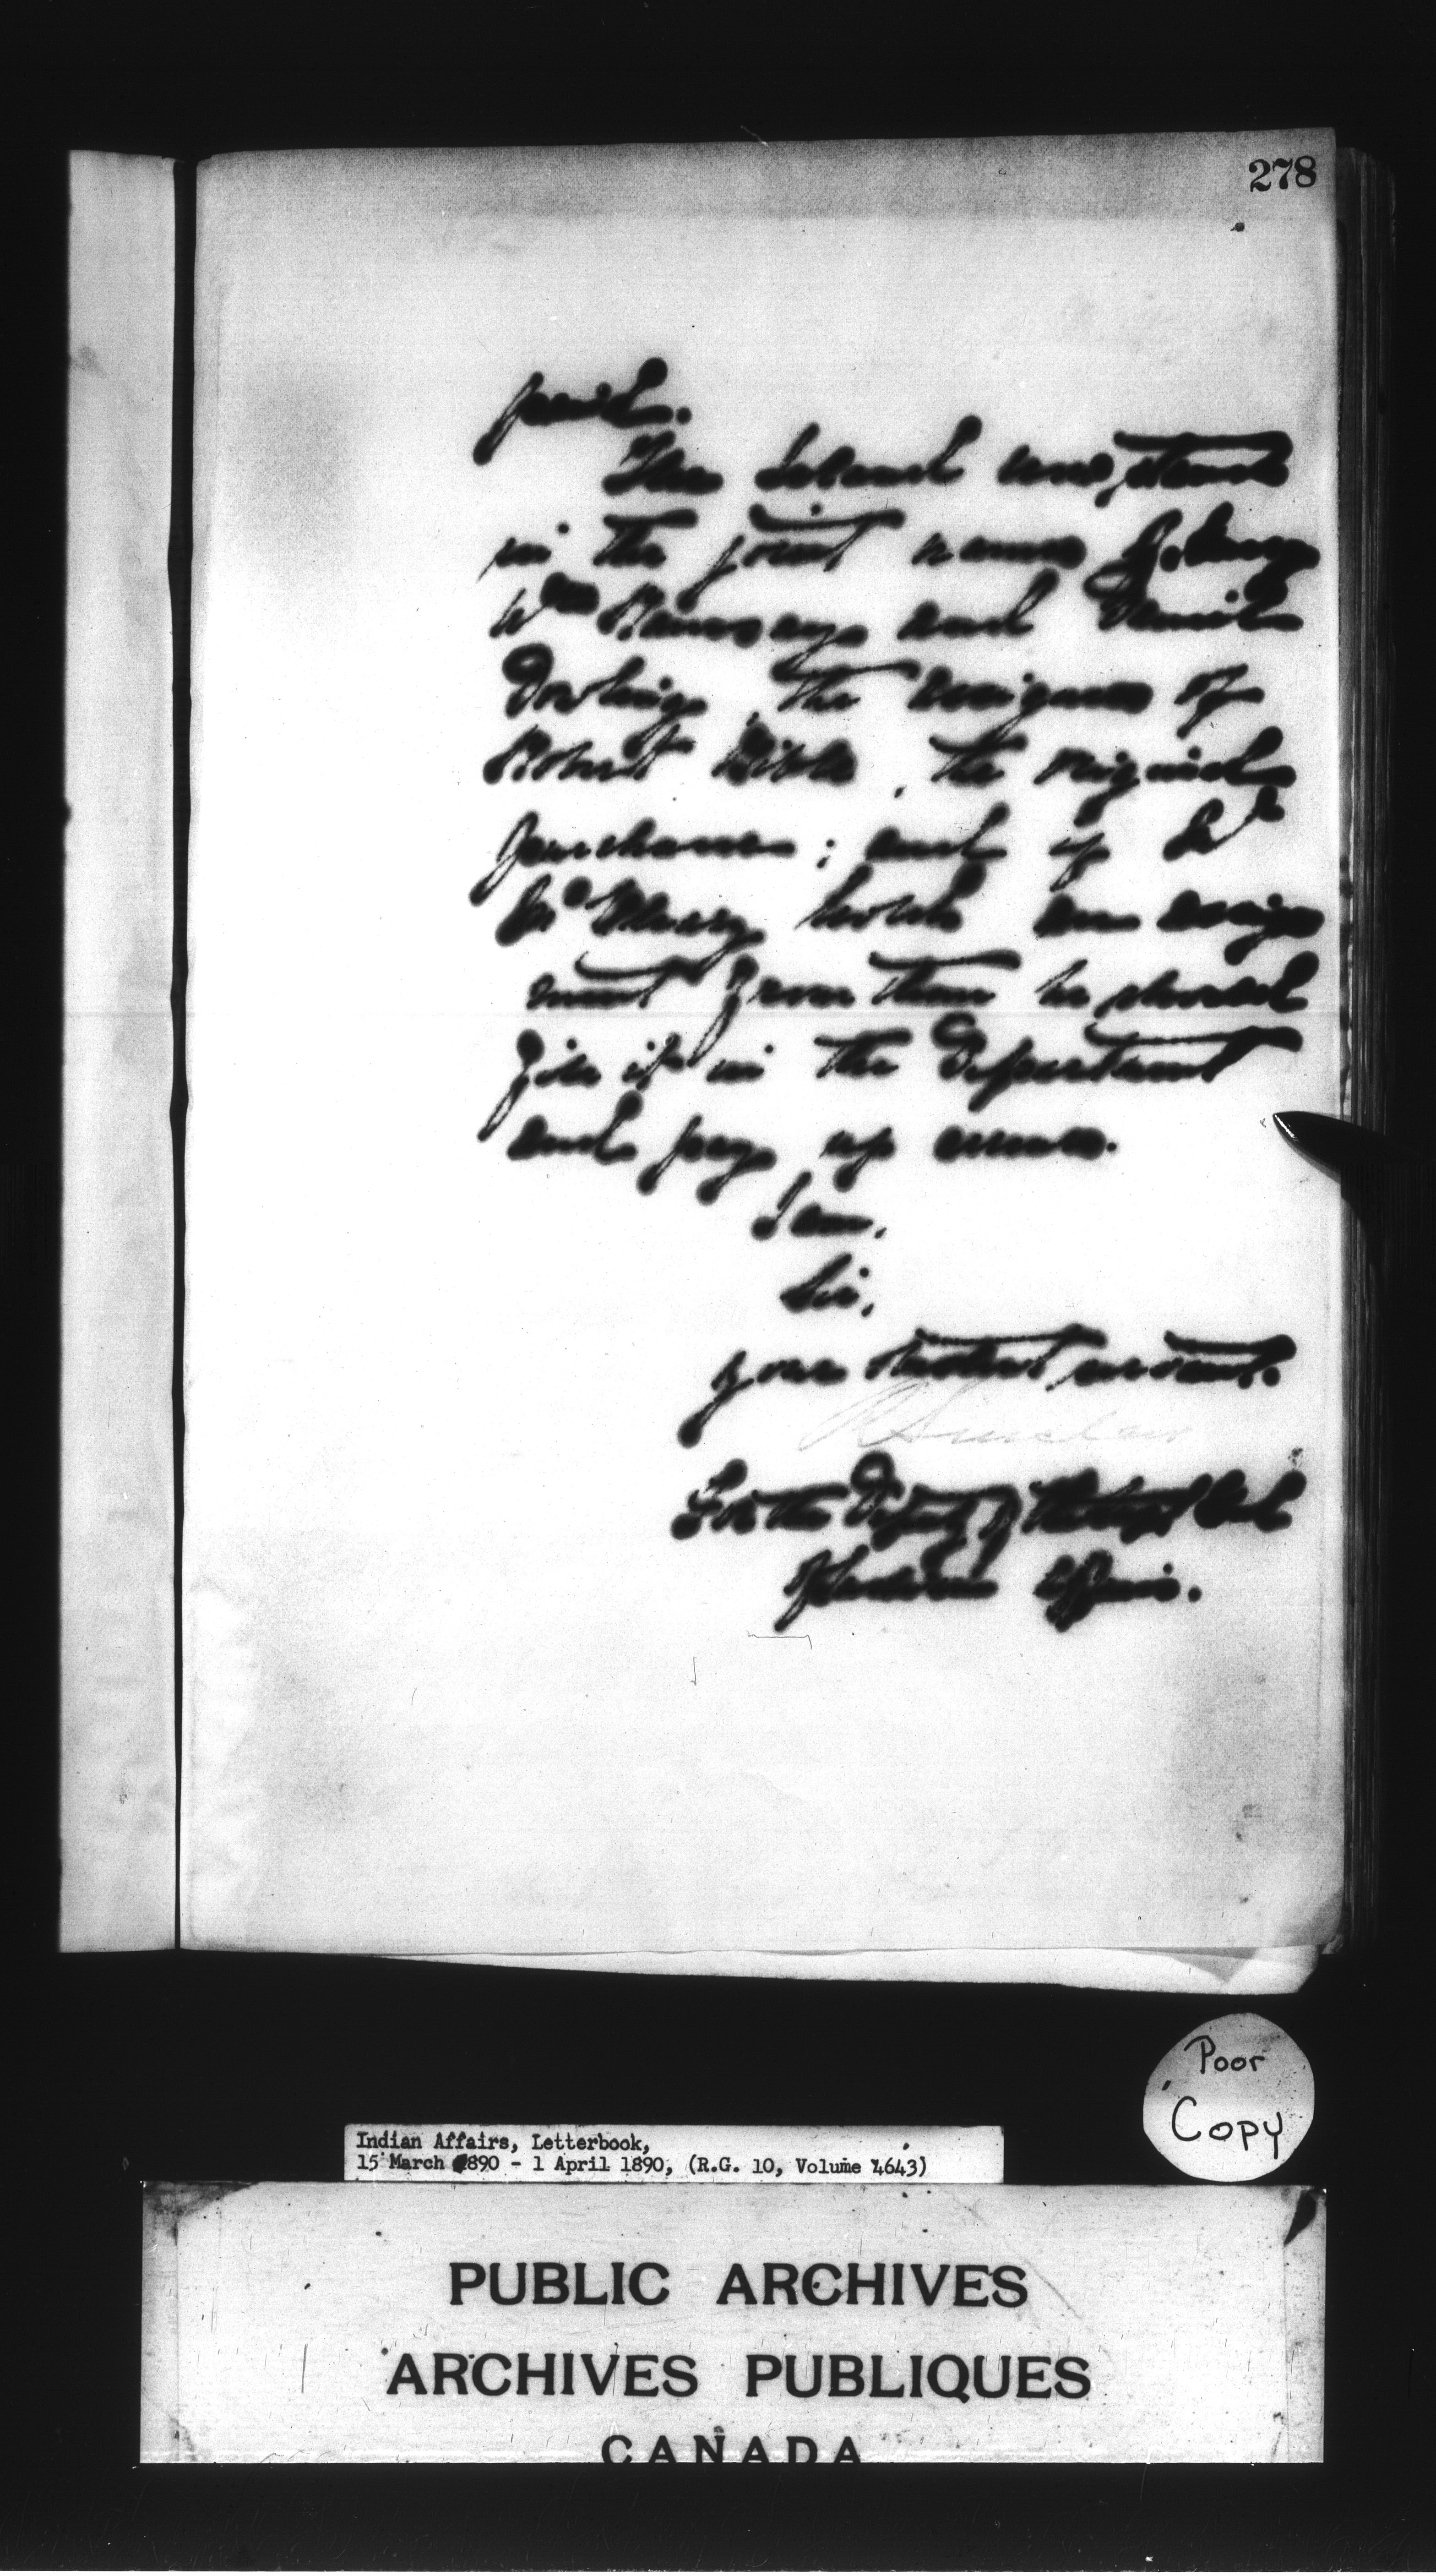 278
paid.
The Island now stands
in the joint names of
Wm Ramsay and Daniel
Dowling, the assignees of
Robert, the original
purchaser; and if Dr
holds an assign
ment from them he should
file it in the Department
and pay up arrears.
I am,
Sir,
your obedient servant.
R Sinclair
For the Deputy of the Supt Genl
of Indian Affairs.
Poor
Copy
Indian Affairs, Letterbook,
15 March 1890 - 1 April 1890, (R.G. 10, Volume 4643)
PUBLIC ARCHIVES
ARCHIVES PUBLIQUES
CANADA